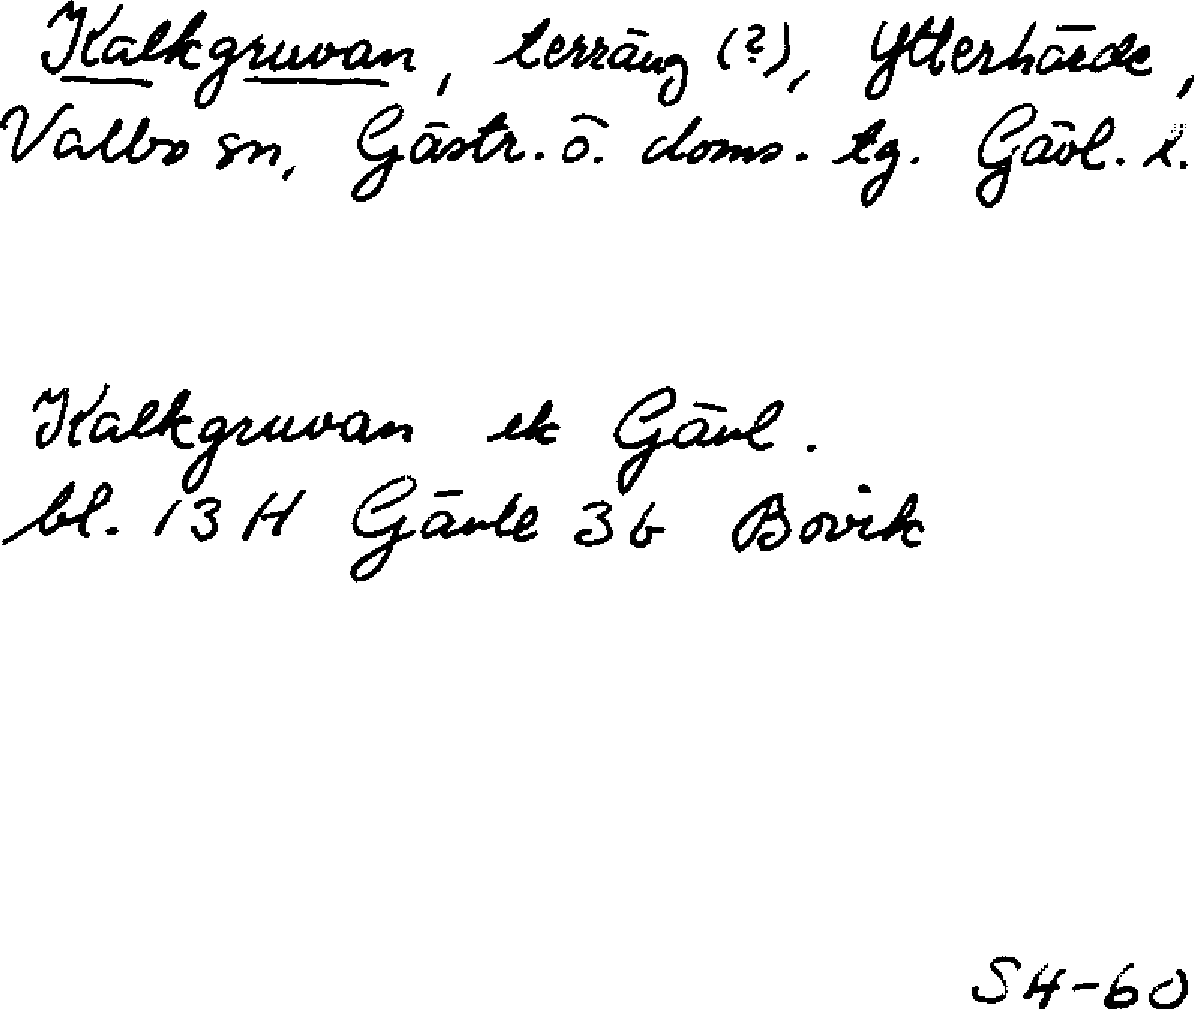 Kalkgruvan, terräng (?), Ytterhärde,
Valbo sn, Gästr. ö. doms. tg. Gävl. l.
Kalkgruvan ek Gävl.
bl. 13 H Gävle 3b Bovik
S4-60